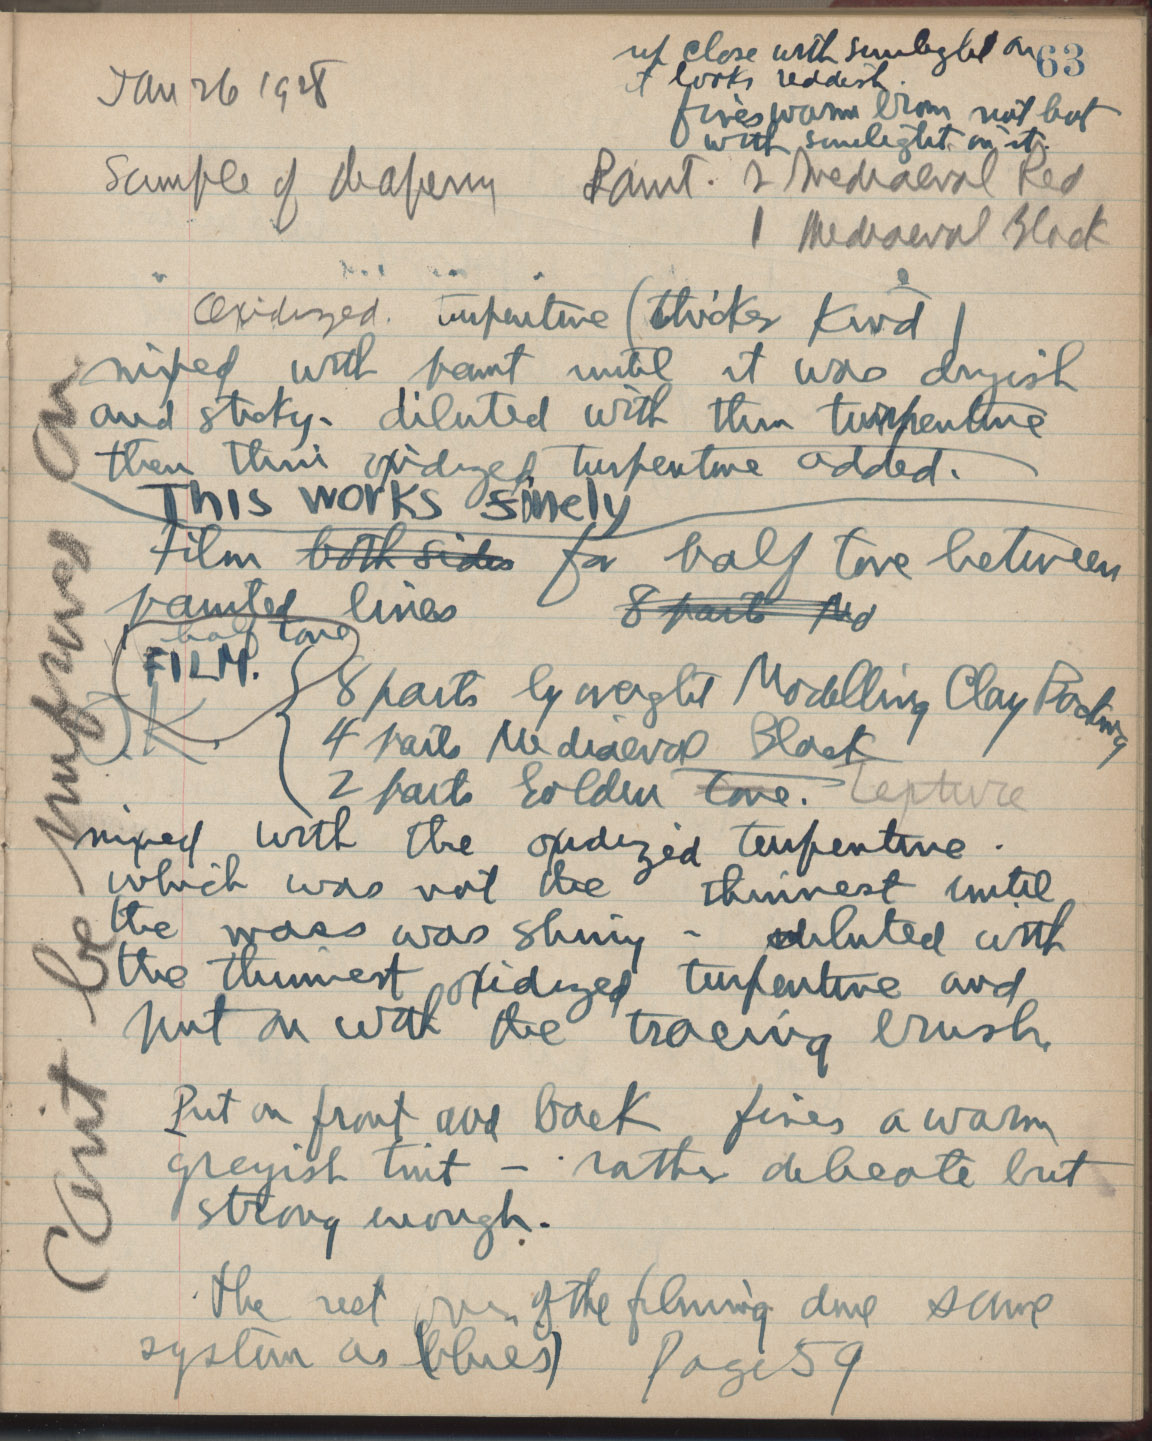 63
up close with sunlight on
it looks reddish.
fires warm brown not but
with sunlight on it.
Jan 26 1928
Sample of drapery Paint. 2 Mediaeval Red
1 Mediaeval Black
Oxidized. turpentine (thicker kind)
mixed with paint until it was dryish
and sticky. diluted with thin turpentine
then thin oxidized turpentine added.
This works finely
Film both sides for half tone between
painted lines 8 parts Med
half tone
FILM.
O.K.
8 parts by weight Modelling Clay Backing
4 parts Mediaeval Black
2 parts Golden tone.
mixed with the oxidized turpentine.
which was not the thinnest until
the mass was shiny - diluted with
the thinnest oxidized turpentine and
put on with the tracing brush.
Put on front and back fires a warm
greyish tint - rather delicate but
strong enough.
The rest of the filming done same
system as (blues) Page 59
Cant be improved on.